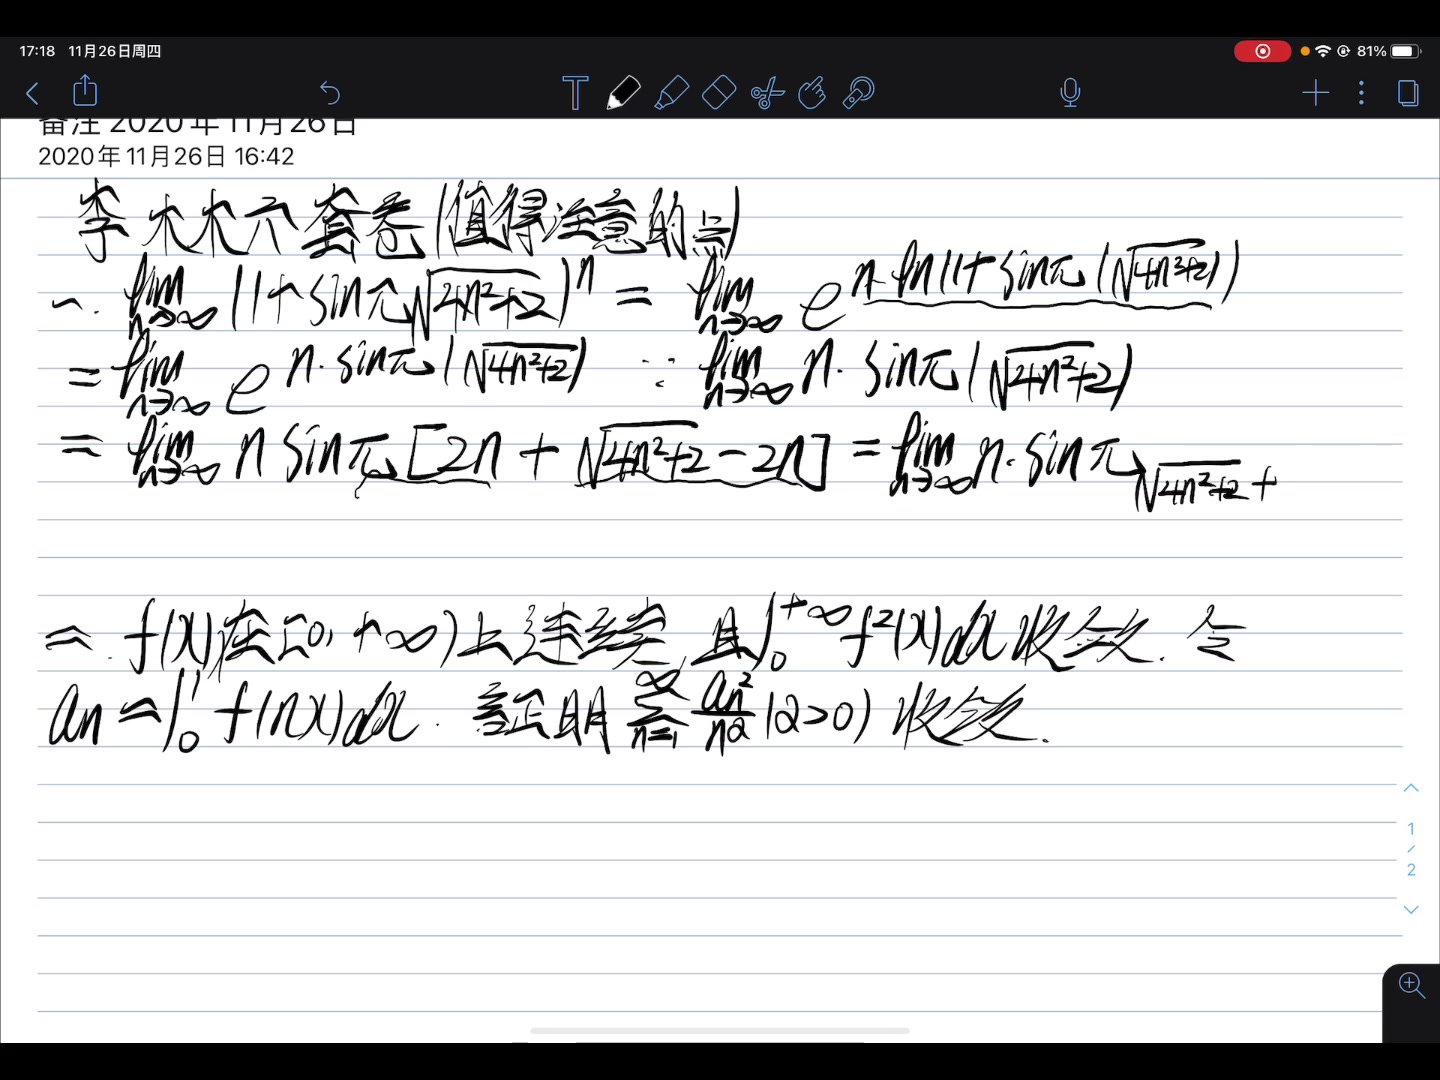 17:18 11月26日周四
81%
备注 2020年11月26日
2020年11月26日 16:42
李木木六套卷(值得注意的点)
一. lim n→∞ (1+sinπ√(4n²+2))^n = lim n→∞ e^(n·ln(1+sinπ(√(4n²+2))))
= lim n→∞ e^(n·sinπ(√(4n²+2))) ∵ lim n→∞ n·sinπ(√(4n²+2))
= lim n→∞ n sinπ[2n+√(4n²+2)-2n] = lim n→∞ n·sinπ √(4n²+2)+
二. f(x)在[0,+∞)上连续,且∫₀^(+∞) f²(x)dx收敛.令
an=∫₀¹ f(nx)dx. 証明 ∑_(n=1)^∞ an²/n^α (α>0) 收敛.
1
/
2